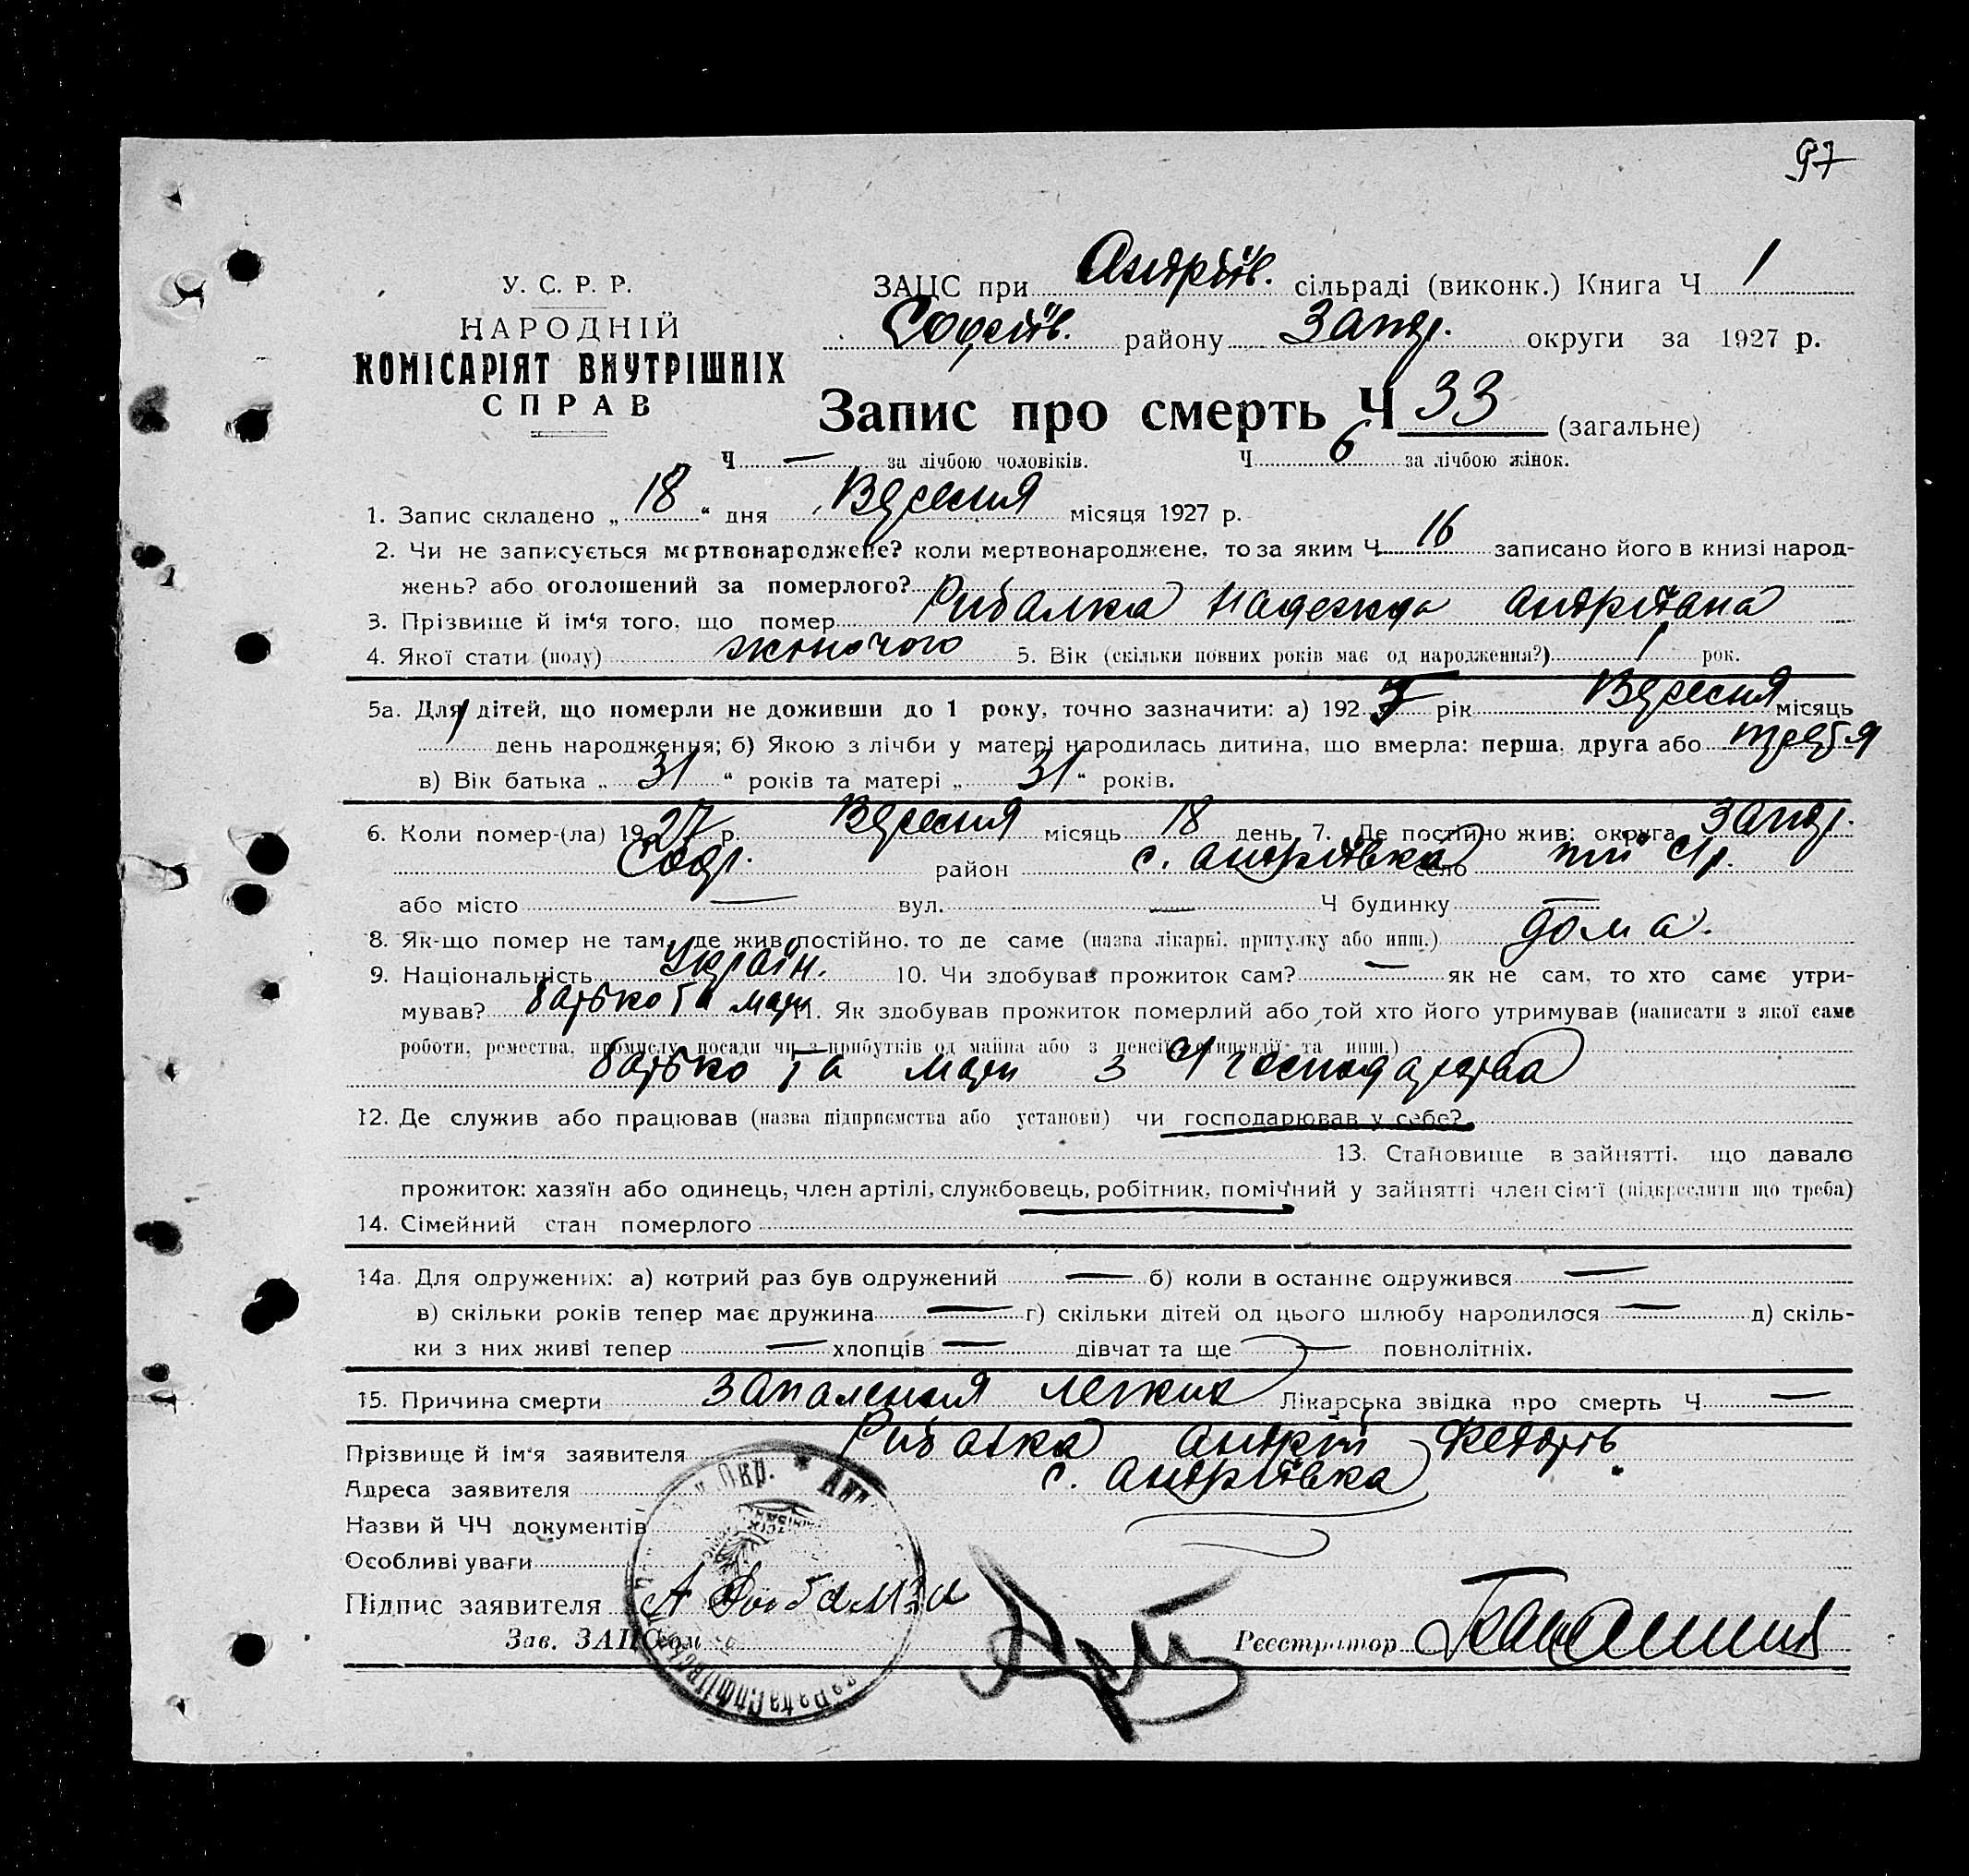 97
У. С. Р. Р.
НАРОДНІЙ
КОМІСАРІЯТ ВНУТРІШНІХ
СПРАВ
ЗАЦС при Андріїв. сільраді (виконк.) Книга Ч 1
Софіїв. району Запор. округи за 1927 р.
Запис про смерть Ч 33 (загальне)
Ч — за лічбою чоловіків. Ч 6 за лічбою жінок.
1. Запис складено „ 18 “ дня Вересня місяця 1927 р.
2. Чи не записується мертвонароджене? коли мертвонароджене, то за яким Ч 16 записано його в книзі народ-
жень? або оголошений за померлого?
3. Прізвище й ім'я того, що помер Рибалка Надежда Андріївна
4. Якої стати (полу) жіночого 5. Вік (скільки повних років має од народження?) 1 рок.
5а. Для дітей, що померли не доживши до 1 року, точно зазначити: а) 192 7 рік Вересня місяць
день народження; б) Якою з лічби у матері народилась дитина, що вмерла: перша, друга або третя
в) Вік батька „ 31 “ років та матері „ 31 “ років.
6. Коли помер-(ла) 1927 р. Вересня місяць 18 день 7. Де постійно жив: округа Запор.
Соф. район с. Андріївка село
або місто — вул. — Ч будинку —
8. Як-що помер не там, де жив постійно, то де саме (назва лікарні, притулку або инш.) дома.
9. Національність Україн. 10. Чи здобував прожиток сам? — як не сам, то хто саме утри-
мував? батько та мати 11. Як здобував прожиток померлий або той хто його утримував (написати з якої саме
роботи, ремества, промислу, посади чи з прибутків од майна або з пенсії, стипендії та инш.)
батько та мати з с/господарства
12. Де служив або працював (назва підприємства або установи) чи господарював у себе?
13. Становище в зайнятті, що давало
прожиток: хазяїн або одинець, член артілі, службовець, робітник, помічний у зайнятті член сім'ї (підкреслити що треба)
14. Сімейний стан померлого
14а. Для одружених: а) котрий раз був одружений — б) коли в останнє одружився —
в) скільки років тепер має дружина — г) скільки дітей од цього шлюбу народилося — д) скіль-
ки з них живі тепер — хлопців — дівчат та ще — повнолітніх.
15. Причина смерти запалення легких Лікарська звідка про смерть Ч —
Прізвище й ім'я заявителя Рибалка Андрій Федорів
Адреса заявителя с. Андріївка
Назви й ЧЧ документів
Особливі уваги
Підпис заявителя А Рибалка
Зав. ЗАЦСом Реєстратор